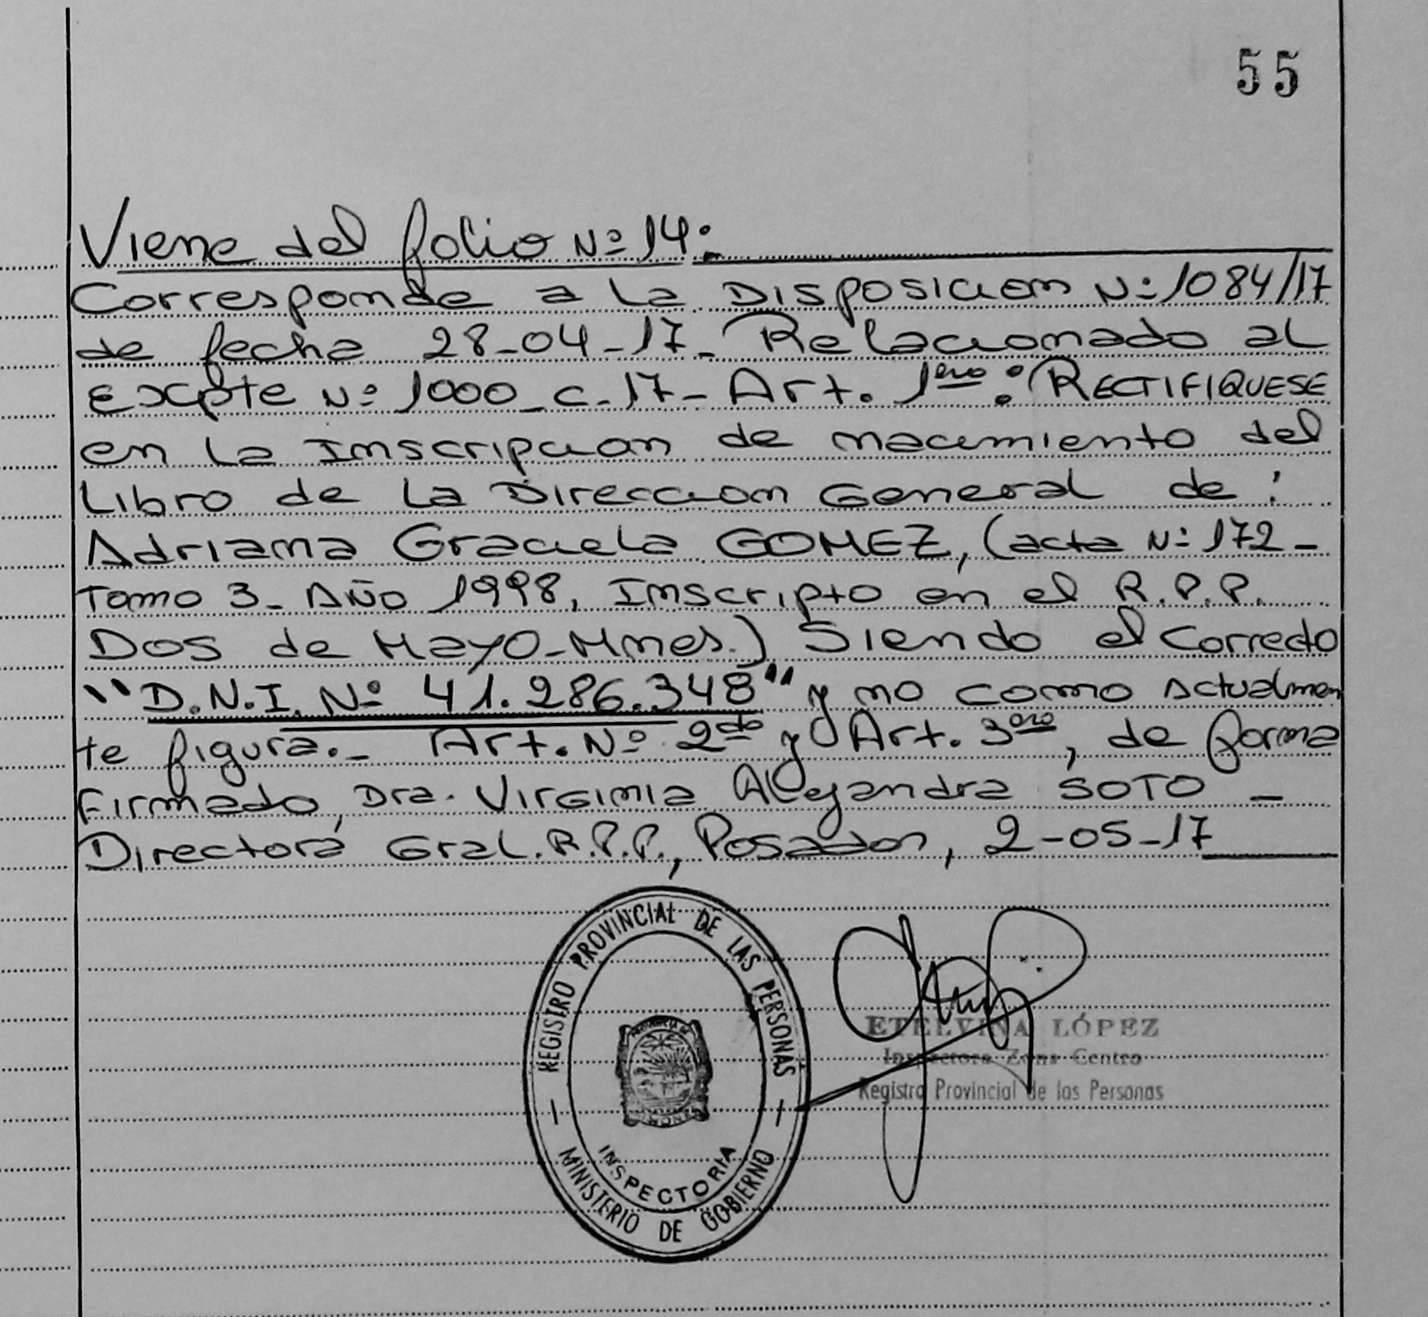 55
Viene del folio Nº 14:
Corresponde a la Disposicion Nº 1084/17
de fecha 28-04-17- Relacionado al
Expte Nº 1000-C-17- Art. 1ero: RECTIFIQUESE
en la Inscripcion de nacimiento del
Libro de la Direccion General de:
Adriana Graciela GOMEZ, (acta Nº 172-
Tomo 3- Año 1998, Inscripto en el R.P.P.
Dos de Mayo-Mnes.) Siendo el Correcto
"D.N.I. Nº 41.286.348" y no como Actualmen
te figura.- Art. Nº 2do y Art. 3ero, de forma
Firmado, Dra. Virginia Alejandra SOTO -
Directora Gral. R.P.P., Posadas, 2-05-17
REGISTRO PROVINCIAL DE LAS PERSONAS
INSPECTORIA
MINISTERIO DE GOBIERNO
ETELVINA LÓPEZ
Inspectora Zona Centro
Registro Provincial de las Personas